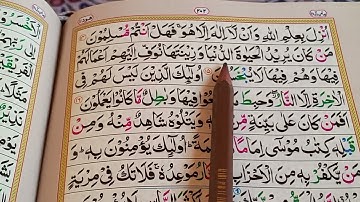 اُنْزِلَ بِعِلْمِ اللّٰهِ وَاَنْ لَّاۤ اِلٰهَ اِلَّا هُوَ ۚ فَهَلْ اَنْتُمْ مُّسْلِمُوْنَ
مَنْ كَانَ يُرِيْدُ الْحَيٰوةَ الدُّنْيَا وَزِيْنَتَهَا نُوَفِّ اِلَيْهِمْ اَعْمَالَهُمْ
فِيْهَا وَهُمْ فِيْهَا لَا يُبْخَسُوْنَ اُولٰٓئِكَ الَّذِيْنَ لَيْسَ لَهُمْ فِى
الْاٰخِرَةِ اِلَّا النَّارُ وَحَبِطَ مَا صَنَعُوْا فِيْهَا وَبٰطِلٌ مَّا كَانُوْا يَعْمَلُوْنَ
اَفَمَنْ كَانَ عَلٰى بَيِّنَةٍ مِّنْ رَّبِّهٖ وَيَتْلُوْهُ شَاهِدٌ مِّنْهُ وَمِنْ
قَبْلِهٖ كِتٰبُ مُوْسٰۤى اِمَامًا وَّرَحْمَةً ؕ اُولٰٓئِكَ يُؤْمِنُوْنَ بِهٖ ؕ وَ
مَنْ يَّكْفُرْ بِهٖ مِنَ الْاَحْزَابِ فَالنَّارُ مَوْعِدُهٗ ۚ فَلَا تَكُ فِىْ مِرْيَةٍ